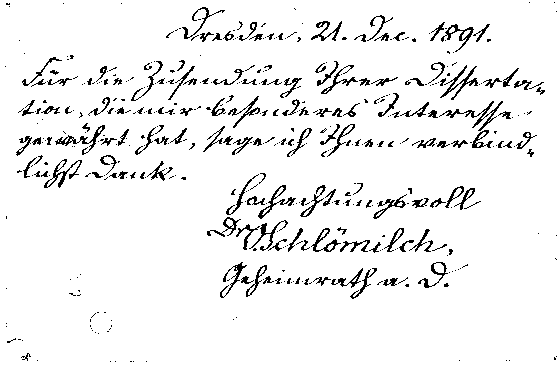 Dresden, 21. Dec. 1891.
Für die Zusendung Ihrer Disserta-
tion, die mir besonderes Interesse
gewährt hat, sage ich Ihnen verbind-
lichst Dank.
Hochachtungsvoll
Dr Schlömilch,
Geheimrath a. D.